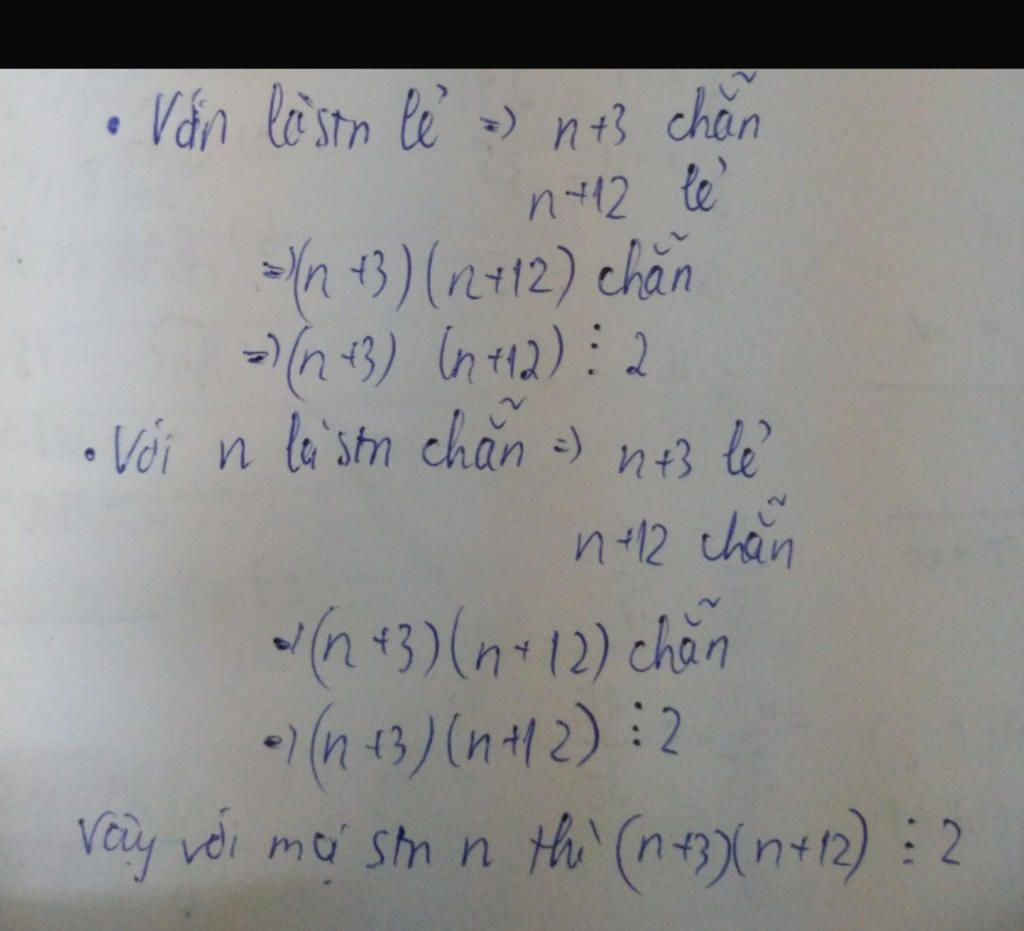 • Với n là stn lẻ => n+3 chẵn
n+12 lẻ
=> (n+3)(n+12) chẵn
=> (n+3) (n+12) ⋮ 2
• Với n là stn chẵn => n+3 lẻ
n+12 chẵn
=> (n+3)(n+12) chẵn
=> (n+3)(n+12) ⋮ 2
Vậy với mọi stn n thì (n+3)(n+12) ⋮ 2